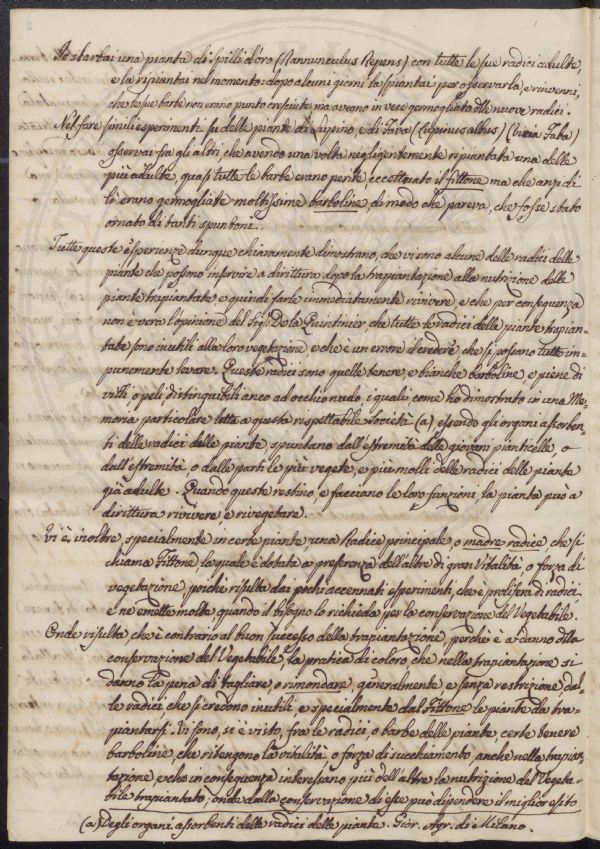 Io sbarbai una pianta di Spilli d'oro (Rannunculus Repens) con tutte le sue radici adulte,
e la ripiantai nel momento: dopo alcuni giorni la spiantai per osservarla, e rinvenni,
che le sue barbe non erano punto cresciute ma aveano in vece germogliato delle nuove radici.
Nel fare simili esperimenti su delle piante di Luppino, e di Fava (Lupinus albus) (Vicia Faba)
osservai fra gli altri che avendo una volta negligentemente ripiantata una delle
più adulte, quasi tutte le barbe erano perite eccettuato il fittone ma che anzi di
lì erano germogliate moltissime barboline, di modo che pareva, che fosse stato
ornato di tanti spuntoni.
Tutte queste esperienze dunque chiaramente dimostrano, che vi sono alcune delle radici delle
piante che possono inservire a dirittura dopo la trapiantazione alla nutrizione delle
piante trapiantate e quindi farle immediatamente rivivere, e che per conseguenza
non è vera l'opinione del Sig.r De la Quintinier che tutte le radici delle piante trapian-
tate sono inutili alla loro vegetazione e che è un errore il credere che si possano tutte im-
punemente levare. Queste radici sono quelle tenere, e bianche barboline, e piene di
villi o peli distinguibili anco ad occhio nudo, i quali come ho dimostrato in una Me-
moria particolare letta a questa rispettabile Società (a) essendo gli organi assorben-
ti delle radici delle piante, spuntano dall'estremità delle giovani pianticelle, o
dall'estremità, o dalle parti le più vegete, e più molli delle radici delle piante
già adulte. Quando queste restino, e facciano le loro funzioni la pianta può a
dirittura rivivere, e rivegetare.
Vi è, inoltre, specialmente in certe piante, una Radice principale o madre radice che si
chiama Fittone la quale è dotata a preferenza dell'altre di gran Vitalità, o forza di
vegetazione, poichè risulta dai pochi accennati esperimenti, che è prolifera di radici,
e ne emette molte quando il bisogno lo richieda per la conservazione del Vegetabile.
Onde risulta che è contrario al buon successo della trapiantazione, perchè è a danno della
conservazione del Vegetabile la pratica di coloro, che nella trapiantazione si
danno la pena di tagliare, o rimondare, generalmente, e senza restrizione dal-
le radici che si credono inutili e specialmente dal Fittone le piante da tra-
piantarsi. Vi sono, si è visto, fra le radici o barbe delle piante, certe tenere
barboline, che ritengono la vitalità, o forza di succhiamento, anche nella trapian-
tazione, e che in conseguenza interessano più dell'altre la nutrizione del Vegeta-
bile trapiantato; onde dalla conservazione di esse può dipendere il miglior esito
(a) Degli organi assorbenti delle radici delle piante. Gior. Agr. di Milano.